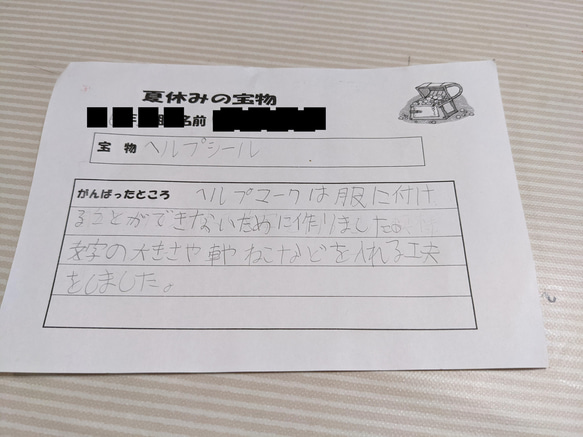 夏休みの宝物
名前
宝物 ヘルプシール
がんばったところ ヘルプマークは服に付け
ることができないために作りました。
文字の大きさや車やねこなどを入れる工夫
をしました。